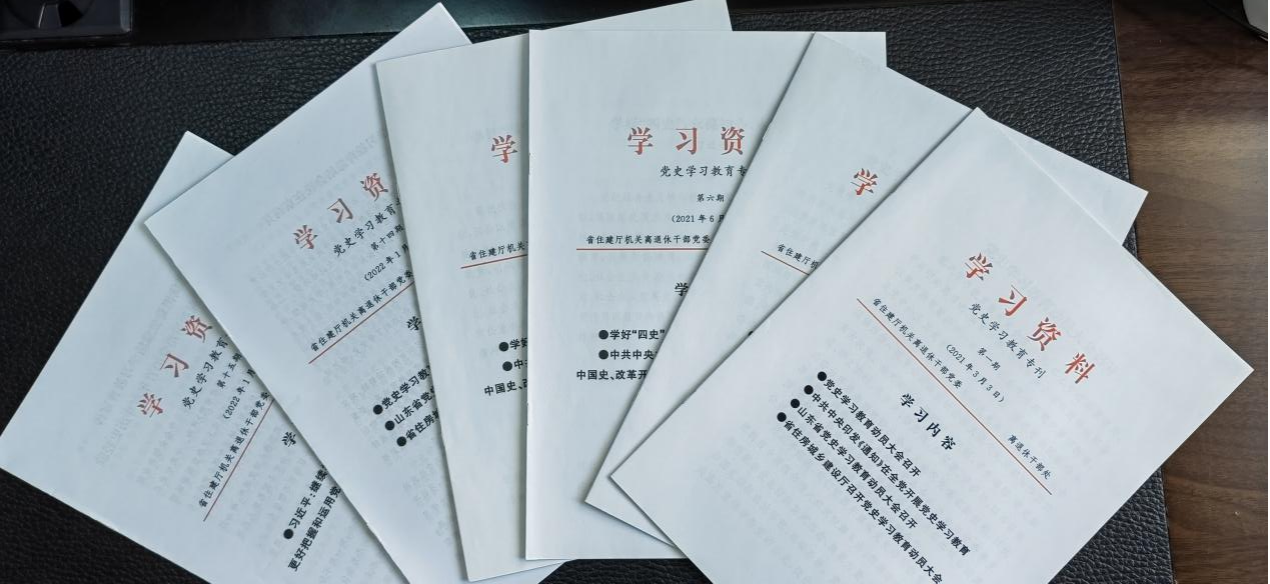 学习资
党史学习教育
第十五期
(2022年1
省住建厅机关离退休干部党委
学
●习近平:继续
更好把握和运用党
学习资
党史学习教育
第十四期
(2022年1月
省住建厅机关离退休干部党委
学
●党史学习教
●山东省党
●省住房
学
省住建厅机关
●学好
●中
中国史、改
学习资
党史学习教育专
第六期
(2021年6月
省住建厅机关离退休干部党委
学
●学好“四史”
●中共中央
中国史、改革开
学
省住建厅机
学习资料
党史学习教育专刊
第一期
(2021年3月3日)
省住建厅机关离退休干部党委 离退休干部处
学习内容
●党史学习教育动员大会召开
●中共中央印发《通知》在全党开展党史学习教育
●山东省党史学习教育动员大会召开
●省住房城乡建设厅召开党史学习教育动员大会